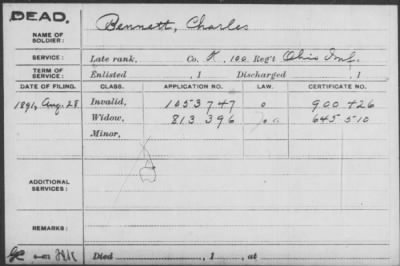 DEAD.
NAME OF SOLDIER: Bennett, Charles
SERVICE: Late rank, Co. K, 100 Reg't Ohio Inf.
TERM OF SERVICE: Enlisted , 1 Discharged , 1
DATE OF FILING. CLASS. APPLICATION NO. LAW. CERTIFICATE NO.
1891, Aug. 28. Invalid, 1053747 900426
Widow, 813396 645510
Minor,
ADDITIONAL SERVICES:
REMARKS:
Died , 1 , at